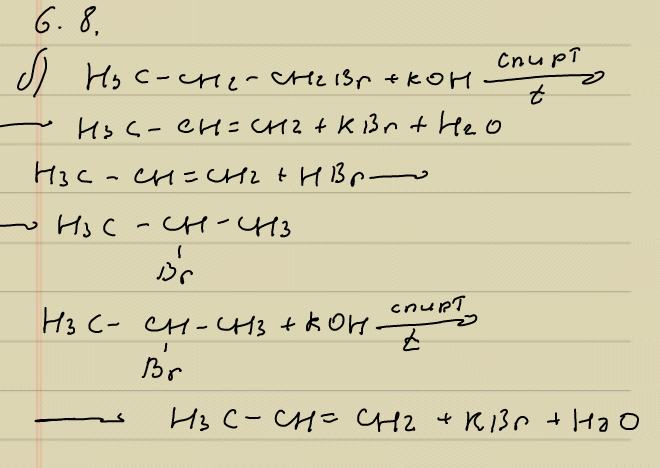 6.8.
б) H3C-CH2-CH2Br+KOH спирт/t →
→ H3C-CH=CH2+KBr+H2O
H3C-CH=CH2+HBr→
→ H3C-CH-CH3
Br
H3C-CH-CH3+KOH спирт/t →
Br
→ H3C-CH=CH2+KBr+H2O